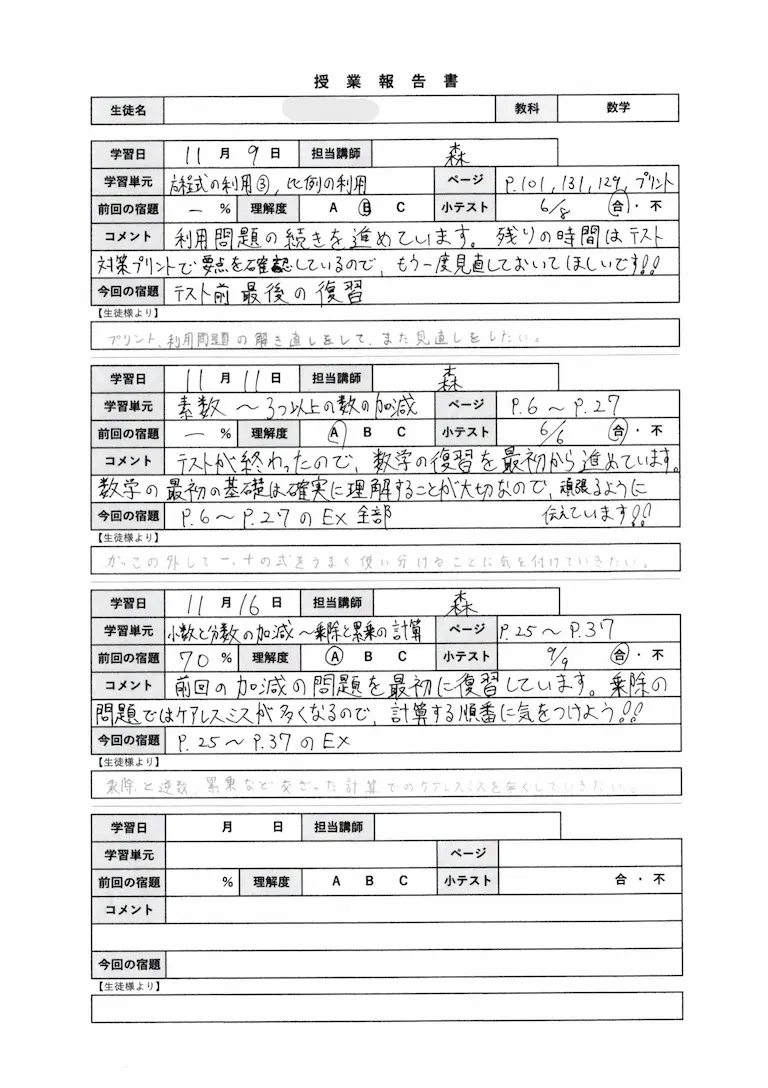 授業報告書
生徒名 教科 数学
学習日 11月9日 担当講師 森
学習単元 方程式の利用③, 比例の利用 ページ P.101, 131, 129, プリント
前回の宿題 ー % 理解度 A B C 小テスト 6/8 合・不
コメント 利用問題の続きを進めています。残りの時間はテスト
対策プリントで要点を確認しているので、もう一度見直しておいてほしいです!!
今回の宿題 テスト前最後の復習
【生徒様より】
プリント、利用問題の解き直しをして、また見直しをしたい。
学習日 11月11日 担当講師 森
学習単元 素数 〜 3つ以上の数の加減 ページ P.6〜P.27
前回の宿題 ー % 理解度 A B C 小テスト 6/6 合・不
コメント テストが終わったので、数学の復習を最初から進めています。
数学の最初の基礎は確実に理解することが大切なので、頑張るように
伝えています!!
今回の宿題 P.6〜P.27のEx全部
【生徒様より】
かっこの外して ー、+の式をうまく使い分けることに気を付けていきたい。
学習日 11月16日 担当講師 森
学習単元 小数と分数の加減〜乗除と累乗の計算 ページ P.25〜P.37
前回の宿題 70 % 理解度 A B C 小テスト 9/9 合・不
コメント 前回の加減の問題を最初に復習しています。乗除の
問題ではケアレスミスが多くなるので、計算する順番に気をつけよう!!
今回の宿題 P.25〜P.37のEx
【生徒様より】
乗除と逆数、累乗など交ざった計算でのケアレスミスを無くしていきたい。
学習日 月 日 担当講師
学習単元 ページ
前回の宿題 % 理解度 A B C 小テスト 合・不
コメント
今回の宿題
【生徒様より】